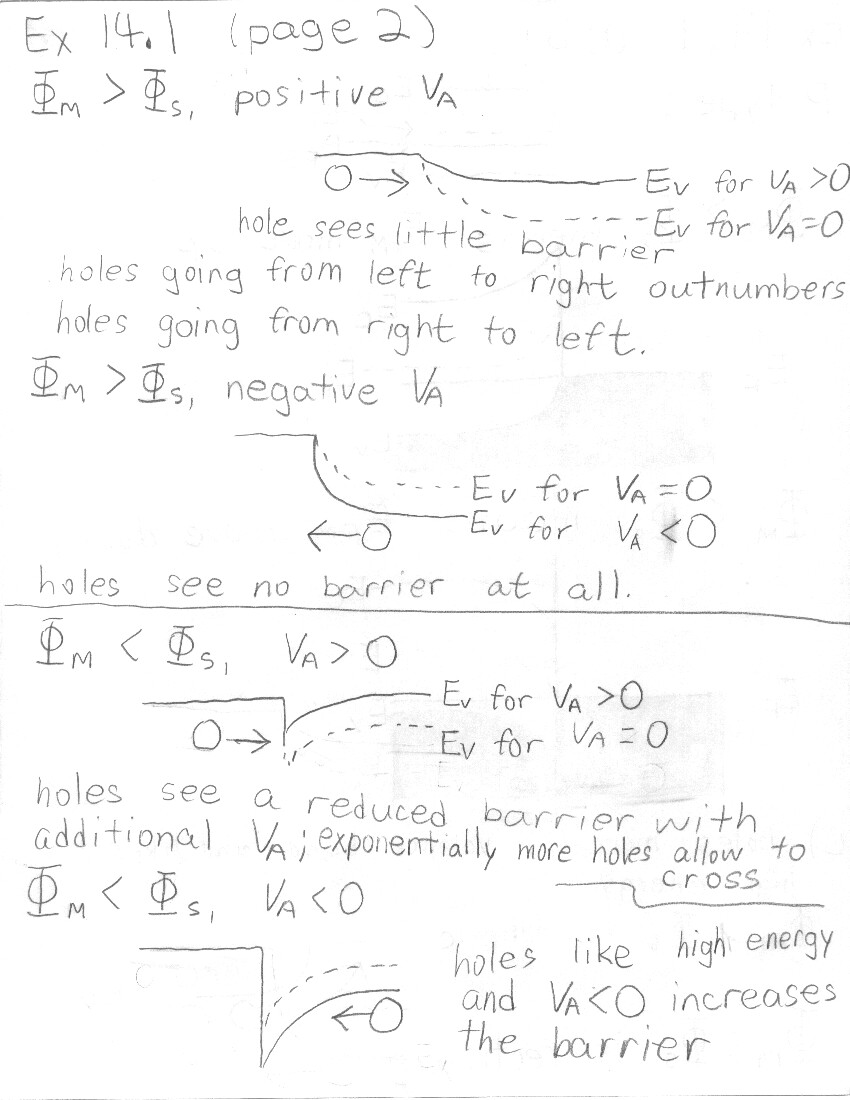 Ex 14.1 (page 2)
Φ_M > Φ_S, positive V_A
O → E_V for V_A >0
E_V for V_A=0
hole sees little barrier
holes going from left to right outnumbers
holes going from right to left.
Φ_M > Φ_S, negative V_A
E_V for V_A = 0
← O E_V for V_A < 0
holes see no barrier at all.
Φ_M < Φ_S, V_A > 0
E_V for V_A >0
O → E_V for V_A = 0
holes see a reduced barrier with
additional V_A; exponentially more holes allow to
cross
Φ_M < Φ_S, V_A < 0
holes like high energy
← O and V_A<0 increases
the barrier